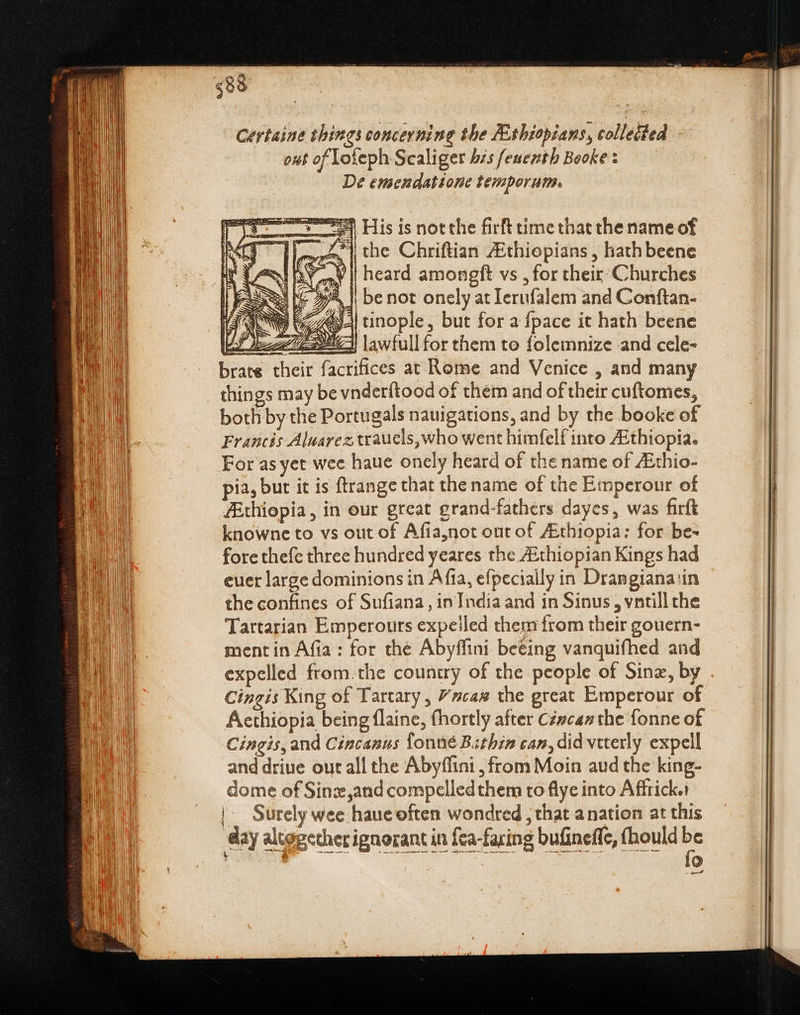 588
Certaine things concerning the Æthiopians, collected
out of Ioſeph Scaliger his ſeuenth Booke:
De emendatione temporum.
THis is not the firſt time that the name of
the Chriſtian Æthiopians, hath beene
heard amongſt vs, for their Churches
be not onely at Ieruſalem and Conſtan-
tinople, but for a ſpace it hath beene
lawfull for them to ſolemnize and cele-
brate their ſacrifices at Rome and Venice, and many
things may be vnderſtood of them and of their cuſtomes,
both by the Portugals nauigations, and by the booke of
Francis Aluarez trauels, who went himſelf into Æthiopia.
For as yet wee haue onely heard of the name of Æthio-
pia, but it is ſtrange that the name of the Emperour of
Æthiopia, in our great grand-fathers dayes, was firſt
knowne to vs out of Aſia, not out of Æthiopia: for be-
fore theſe three hundred yeares the Æthiopian Kings had
euer large dominions in Aſia, eſpecially in Drangiana in
the confines of Suſiana, in India and in Sinus, vntill the
Tartarian Emperours expelled them from their gouern-
ment in Aſia: for the Abyſſini beeing vanquiſhed and
expelled from the country of the people of Sinæ, by
Cingis King of Tartary, Vncam the great Emperour of
Aethiopia being ſlaine, ſhortly after Cincan the ſonne of
Cingis, and Cincanus ſonne Bathin can, did vtterly expell
and driue out all the Abyſſini, from Moin aud the king-
dome of Sinæ, and compelled them to flye into Affrick.
Surely wee haue often wondred, that a nation at this
day altogether ignorant in ſea-faring buſineſſe, ſhould be
ſo